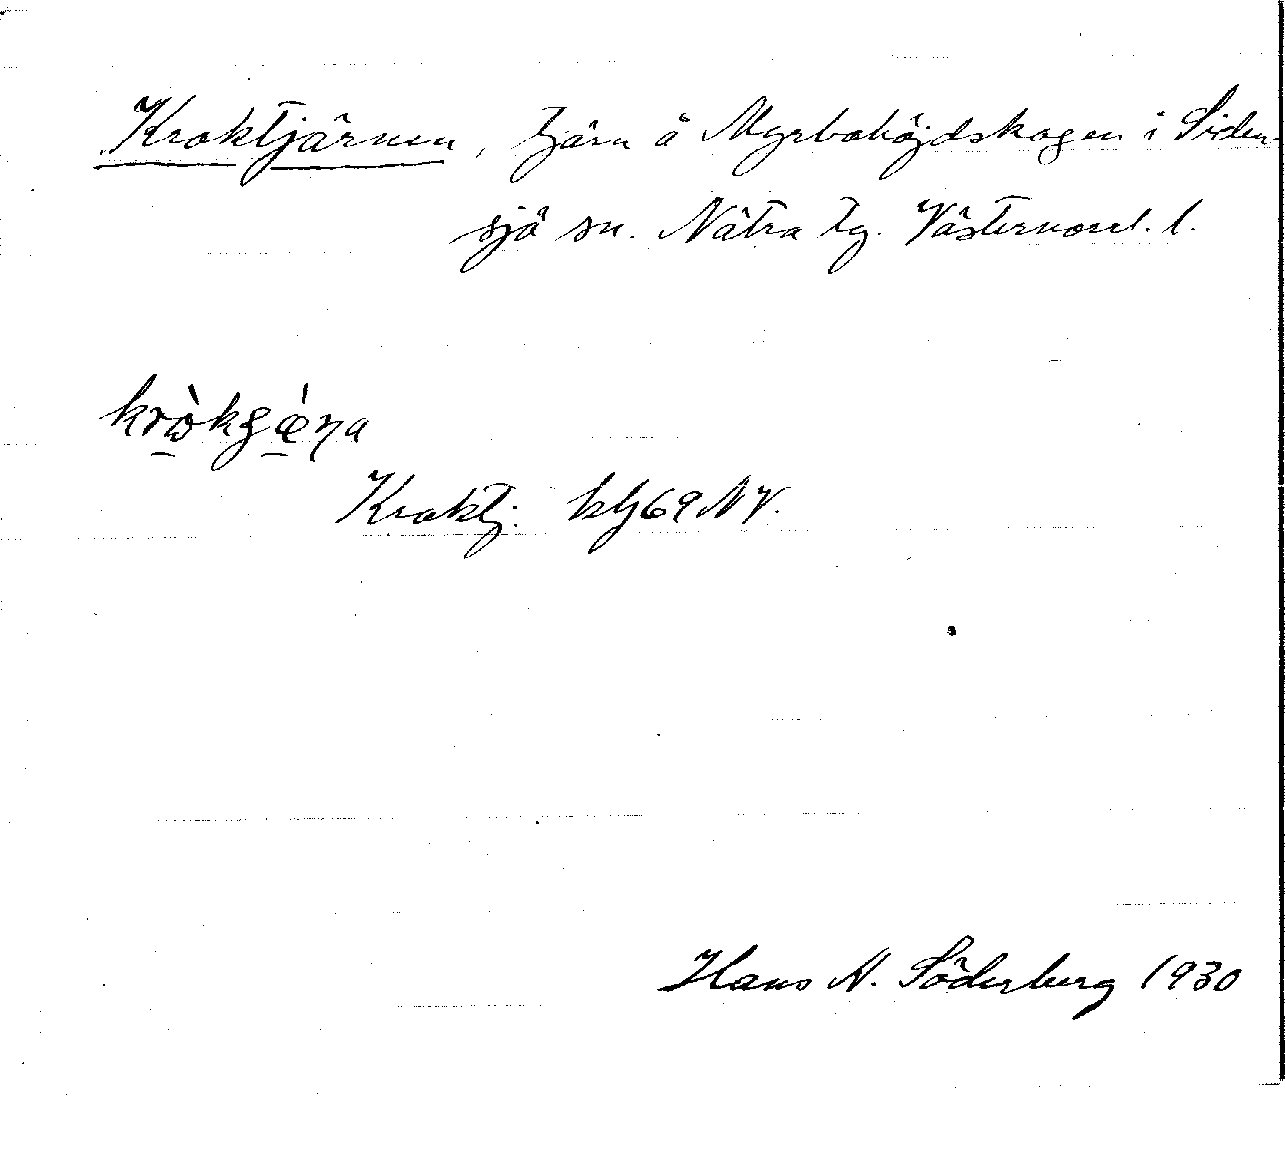 Kroktjärnen, tjärn å Myckelhöjdskogen i Siden-
sjö sn. Nätra tg. Västernorrl. l.
Kroktj. hlj69NV.
Hans N. Söderberg 1930